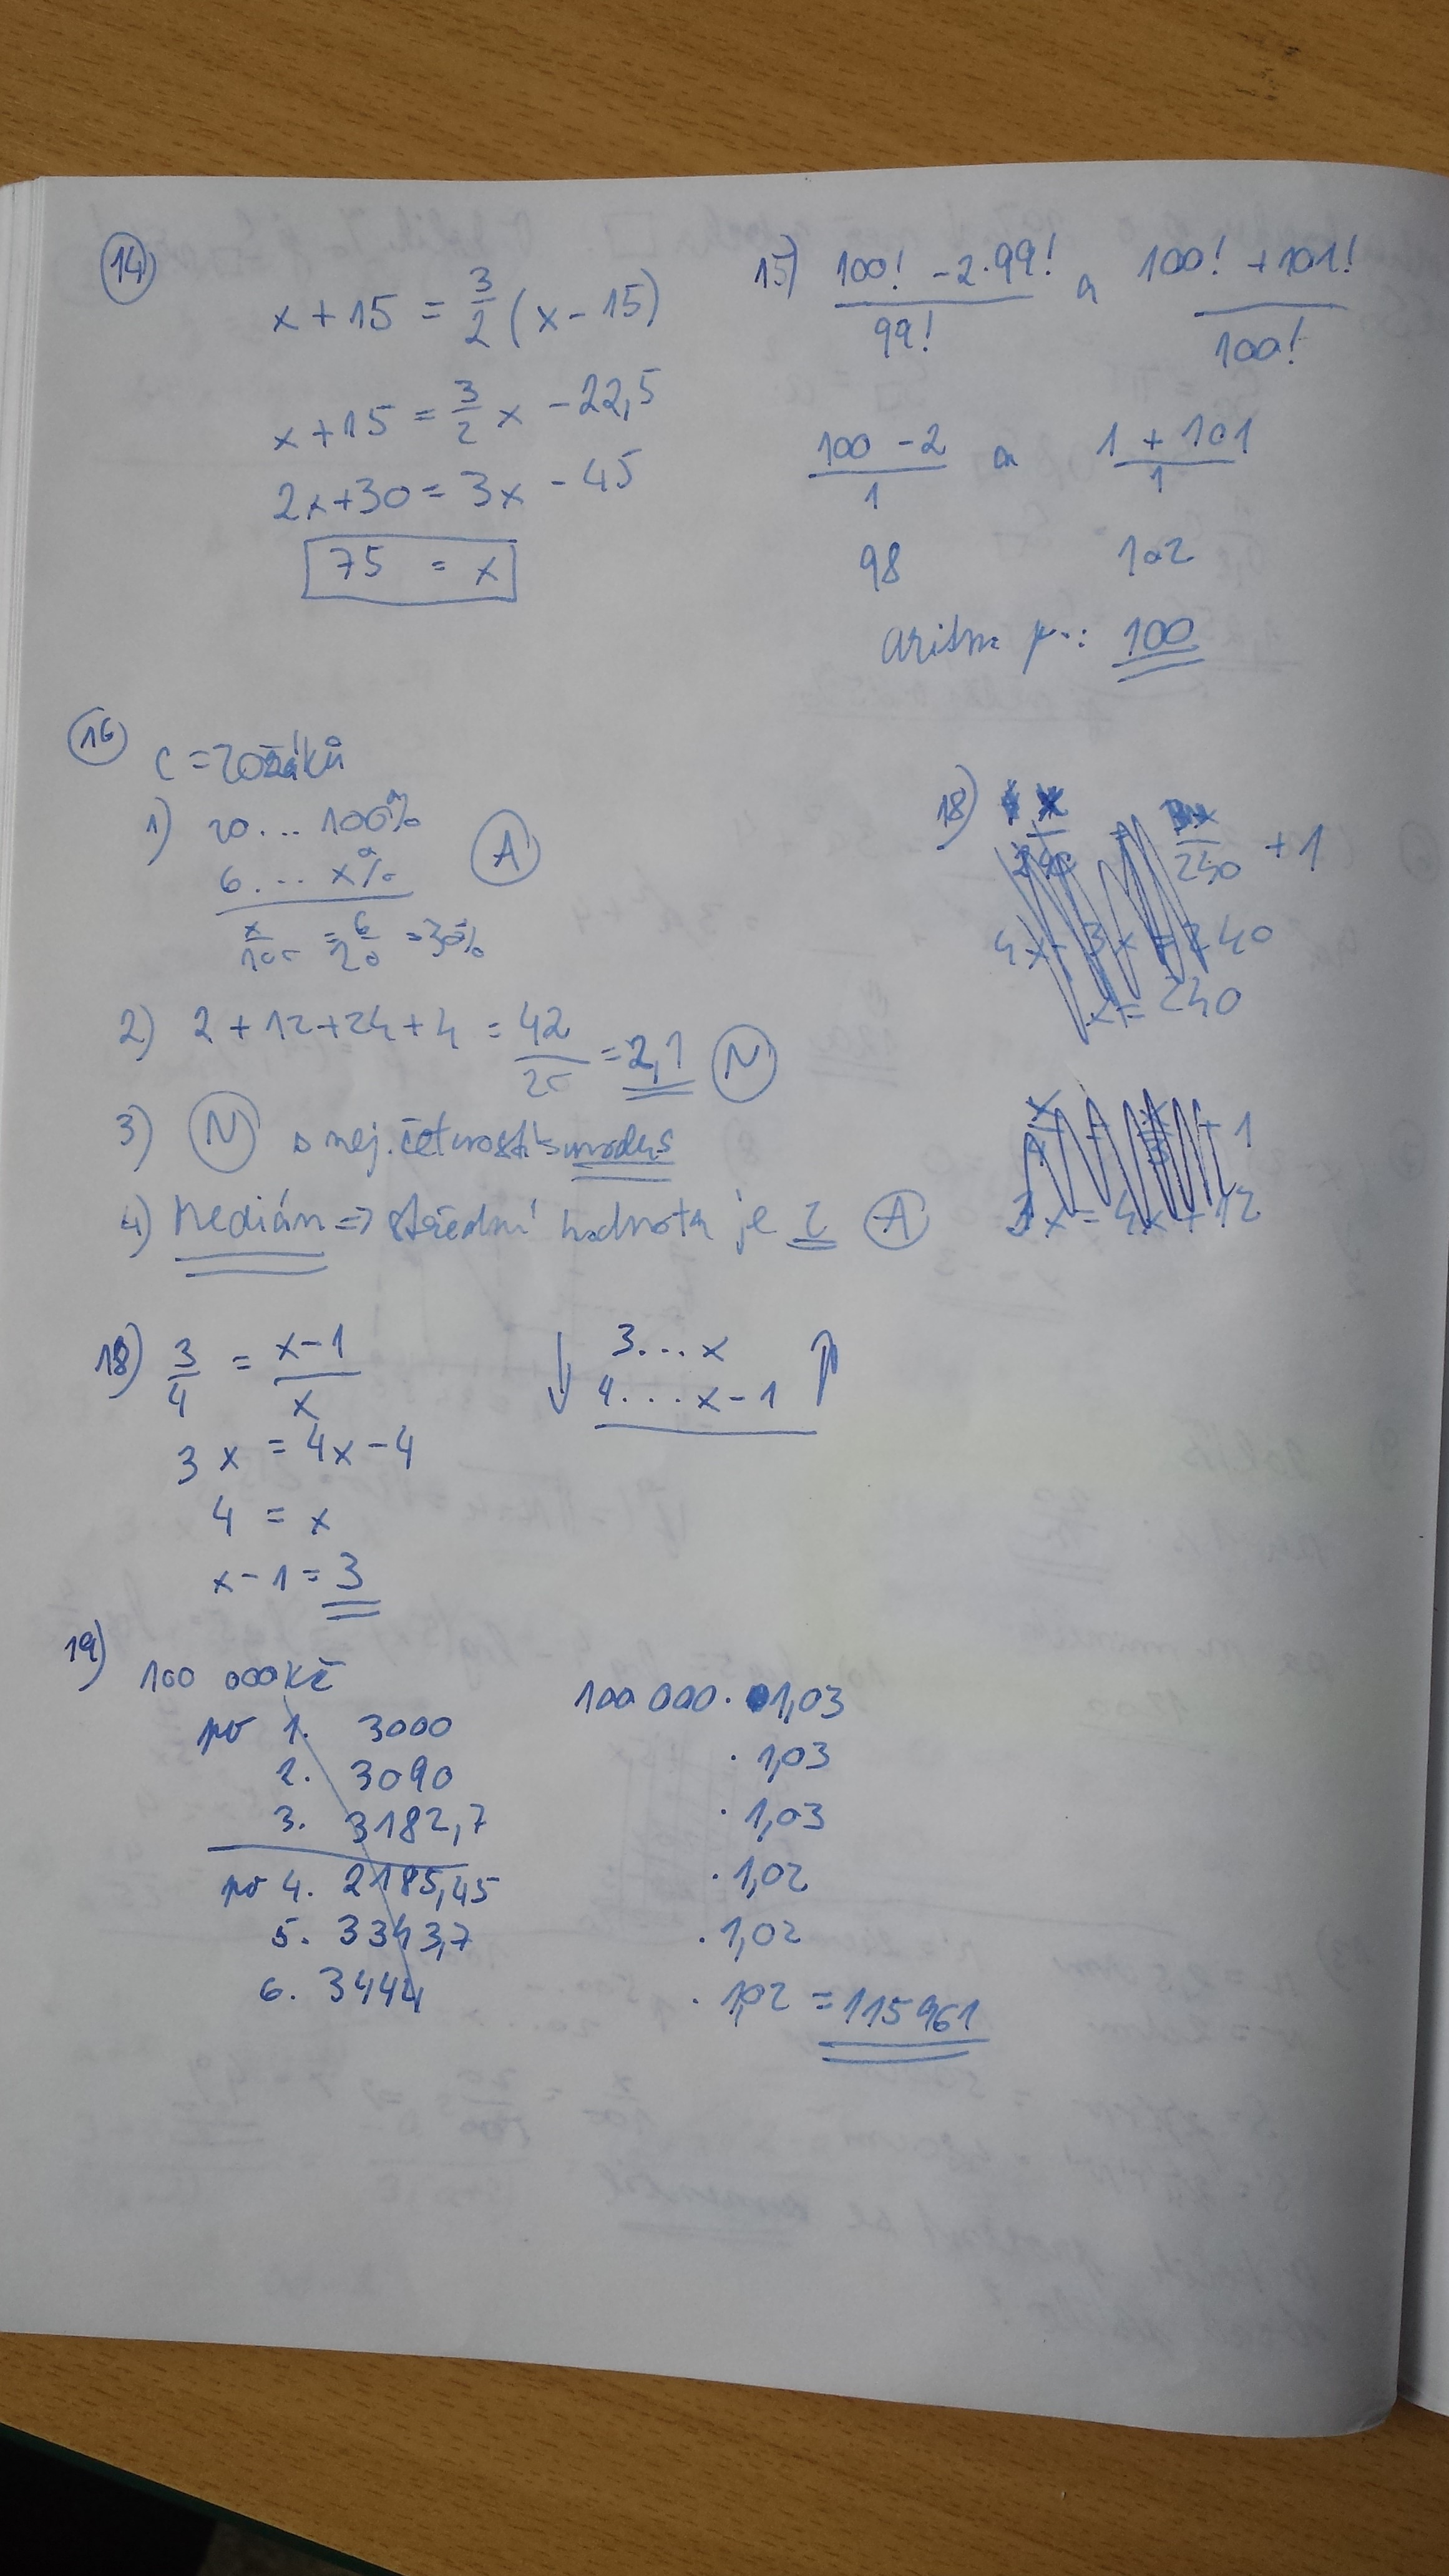 14)
x + 15 = 3/2 (x - 15)
x + 15 = 3/2 x - 22,5
2x + 30 = 3x - 45
75 = x
15) (100! - 2·99!)/99! a (100! + 101!)/100!
(100 - 2)/1 a (1 + 101)/1
98 102
aritm. p.: 100
16) C = 20 žáků
1) 20 ... 100% A
6 ... x%
x/100 = 6/20 = 30%
2) 2 + 12 + 24 + 4 = 42/20 = 2,1 N
3) N nej. četností modus
4) Medián => střední hodnota je 2 A
18) + 1
4x - 3x = 240
x = 240
+ 1
3x = 4x + 12
18) 3/4 = (x - 1)/x
3x = 4x - 4
4 = x
x - 1 = 3
↓ 3 ... x ↑
4 ... x - 1
19) 100 000 Kč
po 1. 3000
2. 3090
3. 3182,7
po 4. 2185,45
5. 3343,7
6. 3444
100 000 · 1,03
· 1,03
· 1,03
· 1,02
· 1,02
· 1,02 = 115961